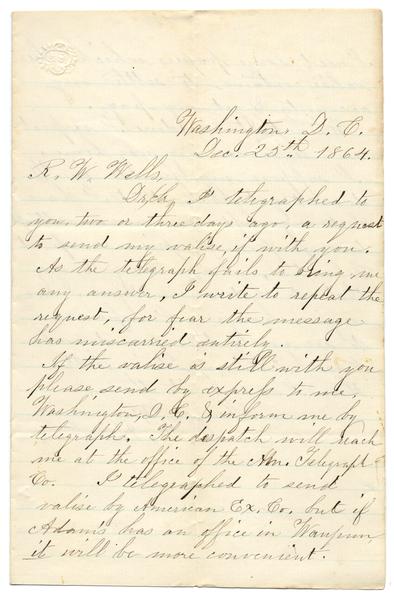 Washington, D. C.
Dec. 25th 1864.
R. W. Wells,
I telegraphed to
you two or three days ago, a request
to send my valise, if with you.
As the telegraph fails to bring me
any answer, I write to repeat the
request, for fear the message
has miscarried entirely.
If the valise is still with you
please send by express to me,
Washington, D. C. & inform me by
telegraph. The dispatch will reach
me at the office of the Am. Telegraph
Co. I telegraphed to send
valise by American Ex. Co. but if
Adams has an office in Waupun,
it will be more convenient.